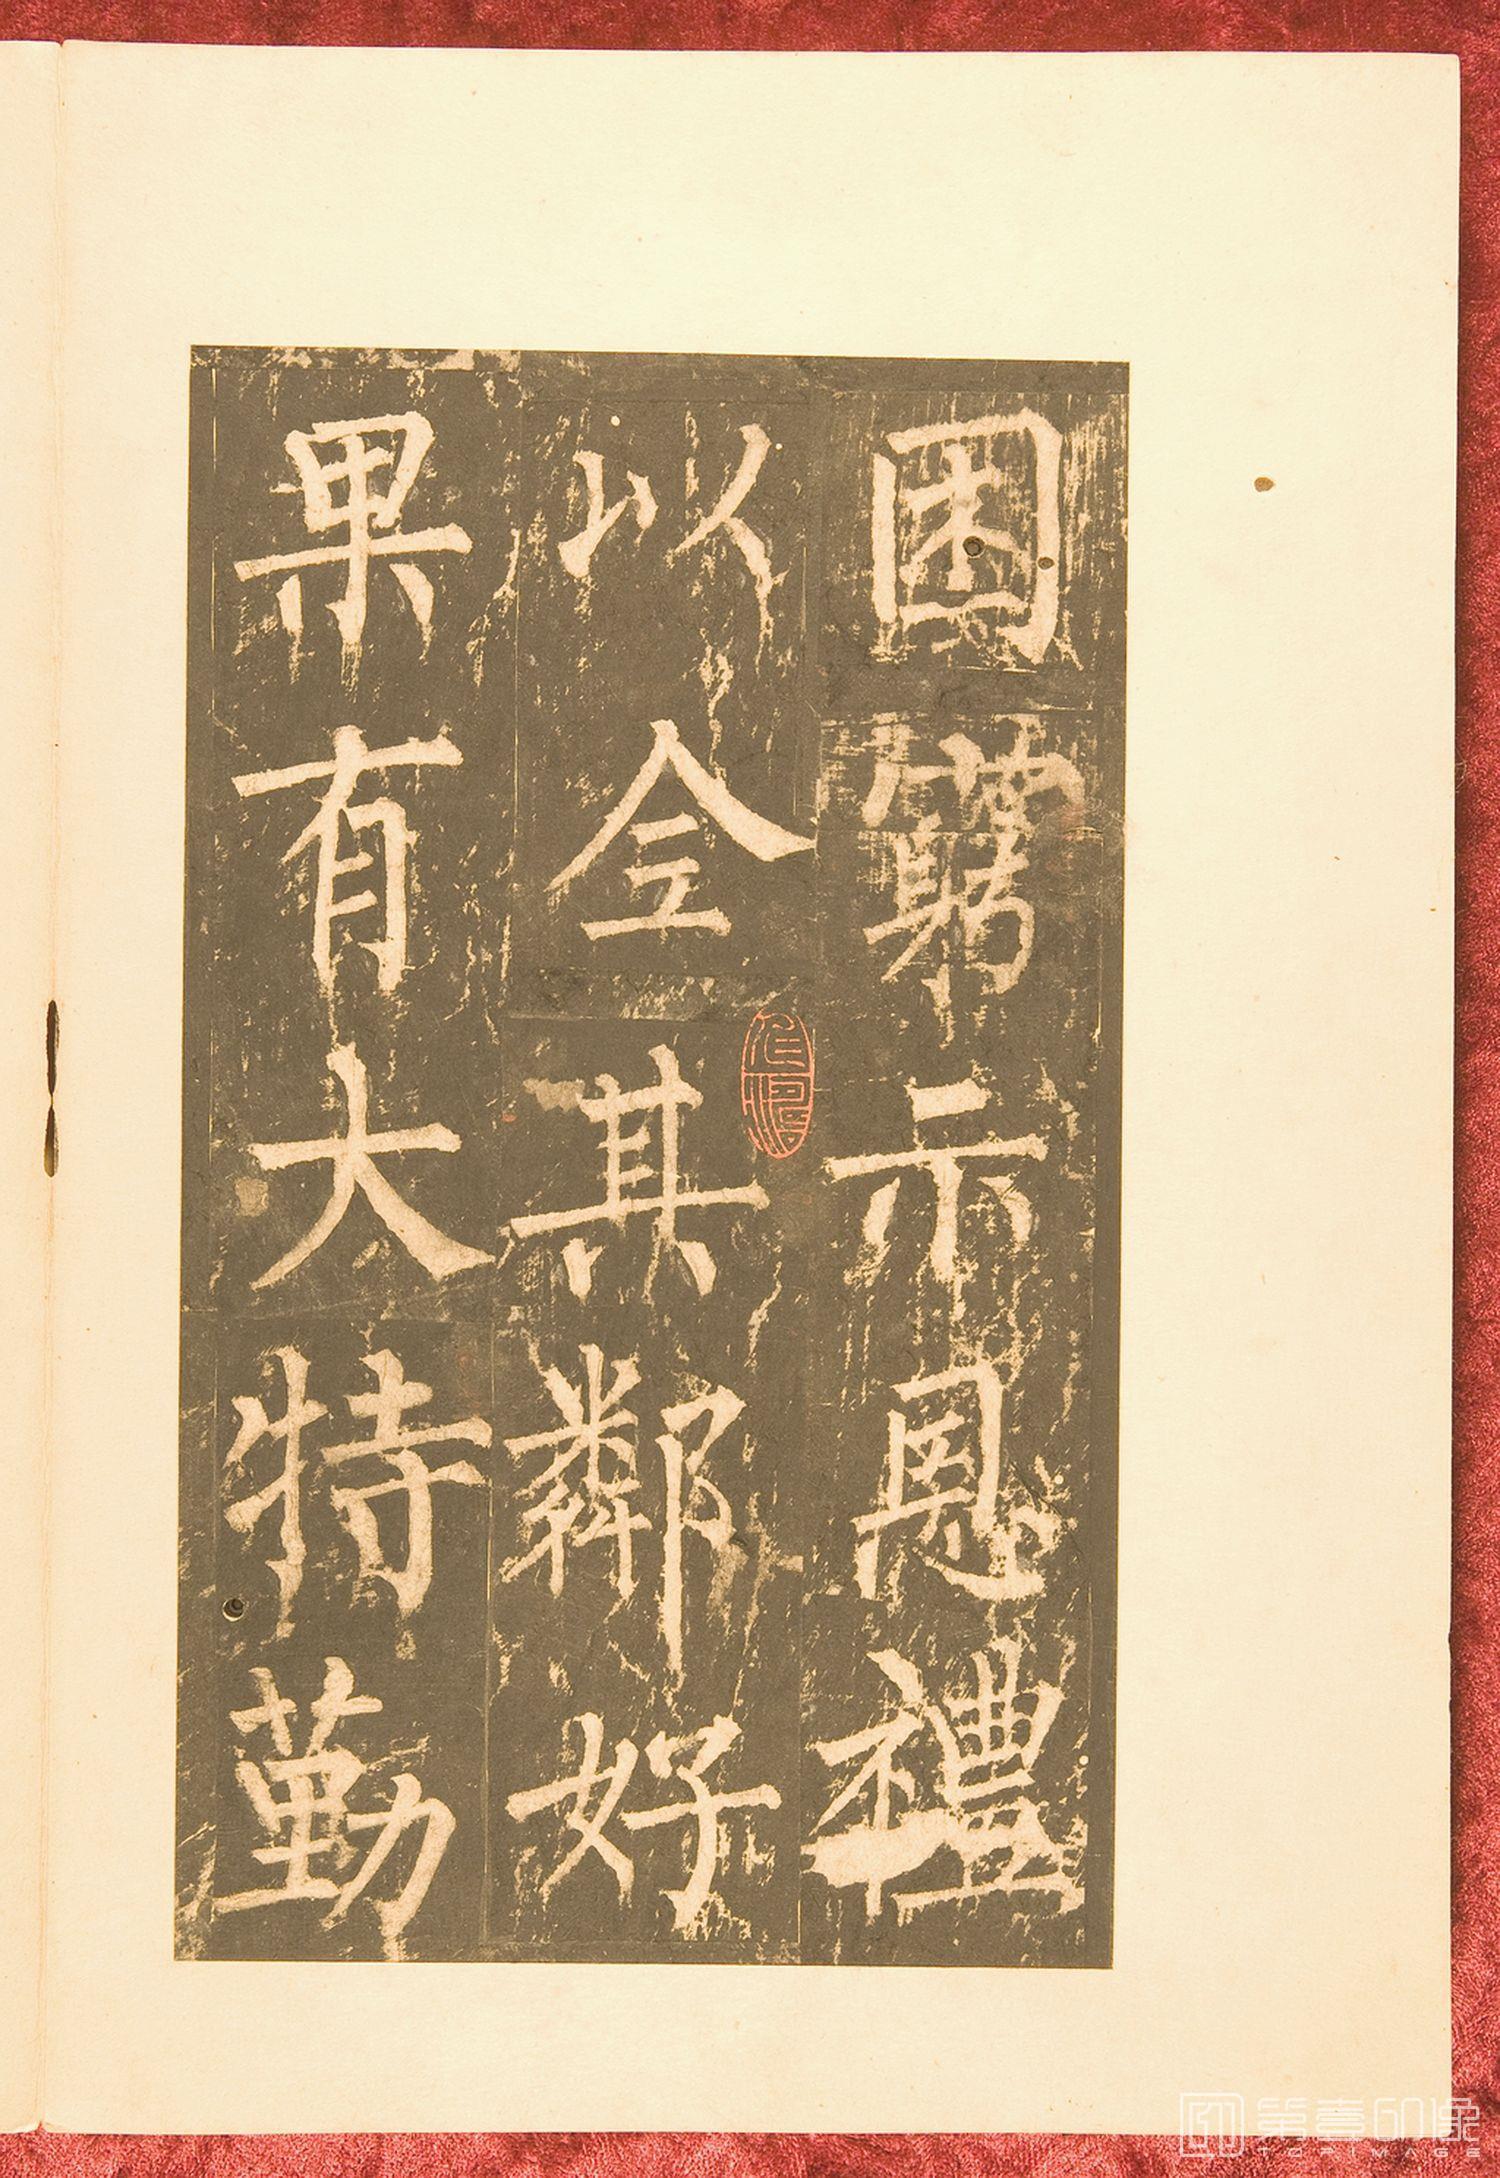 困窮示恩禮
以全其鄰好
果有大特勤
第壹印像
TOPIMAGE